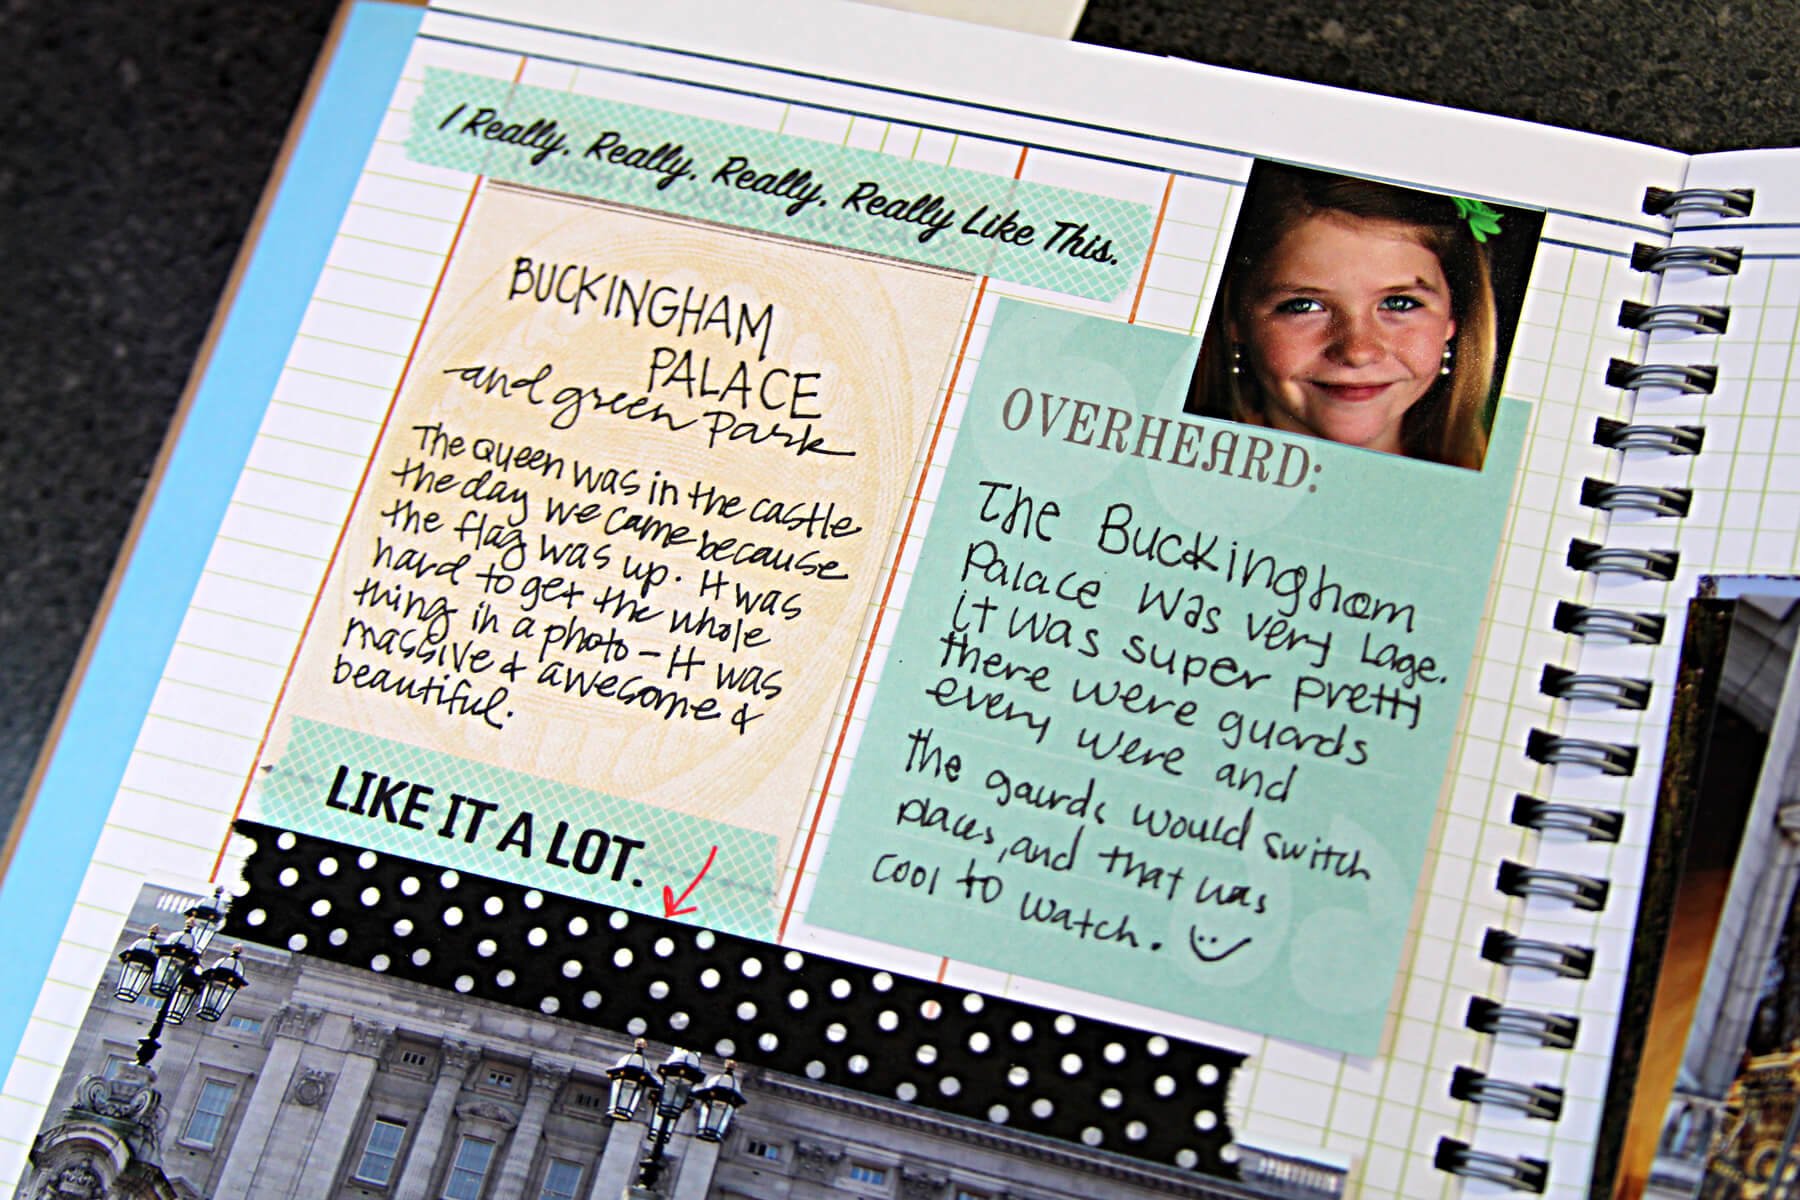 I Really. Really. Really. Really Like This.
BUCKINGHAM
PALACE
and green Park
The Queen was in the castle
the day we came because
the flag was up. It was
hard to get the whole
thing in a photo - it was
massive & awesome &
beautiful.
LIKE IT A LOT.
OVERHEARD:
The Buckingham
Palace was very Lage.
it was super pretty
there were guards
every were and
the gaurds would switch
places, and that was
cool to watch.